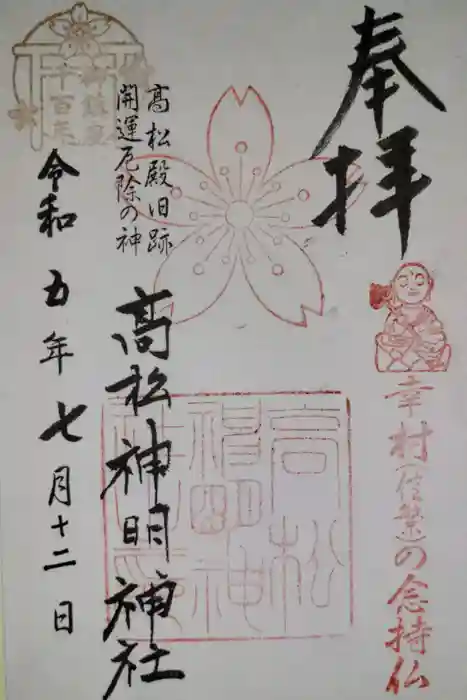 奉拝
幸村信繁の念持仏
高松殿旧跡
開運厄除の神
高松神明神社
高松
神明神
令和五年七月十二日
御鎮座
千百年